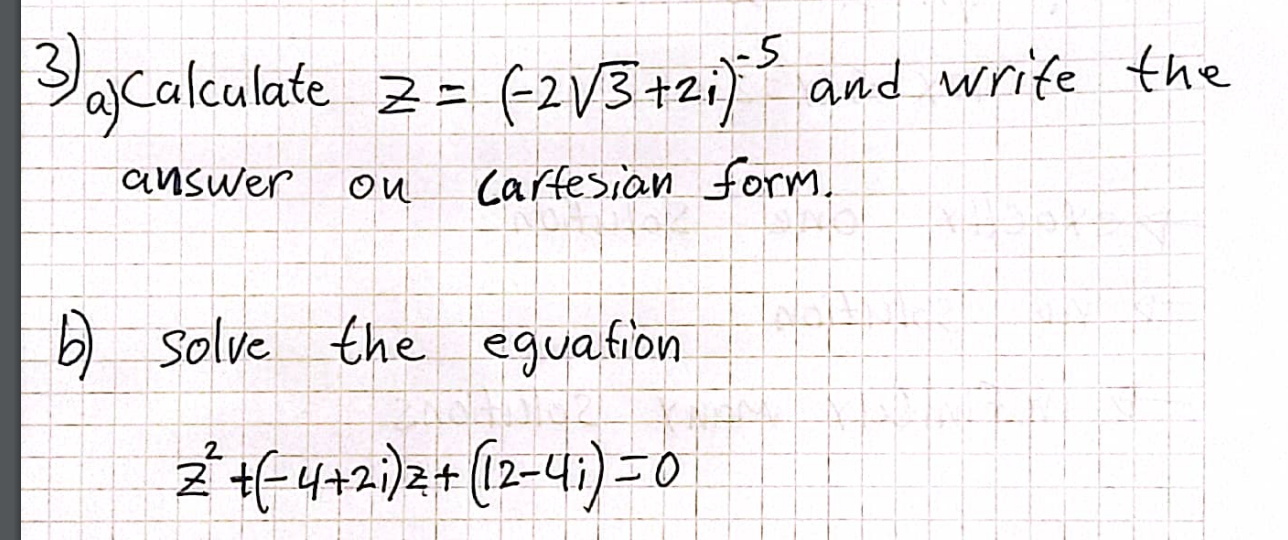 3) a) Calculate z = (-2√3+2i)^-5 and write the
answer on Cartesian form.
b) solve the equation
z² +(-4+2i)z+ (12-4i)=0